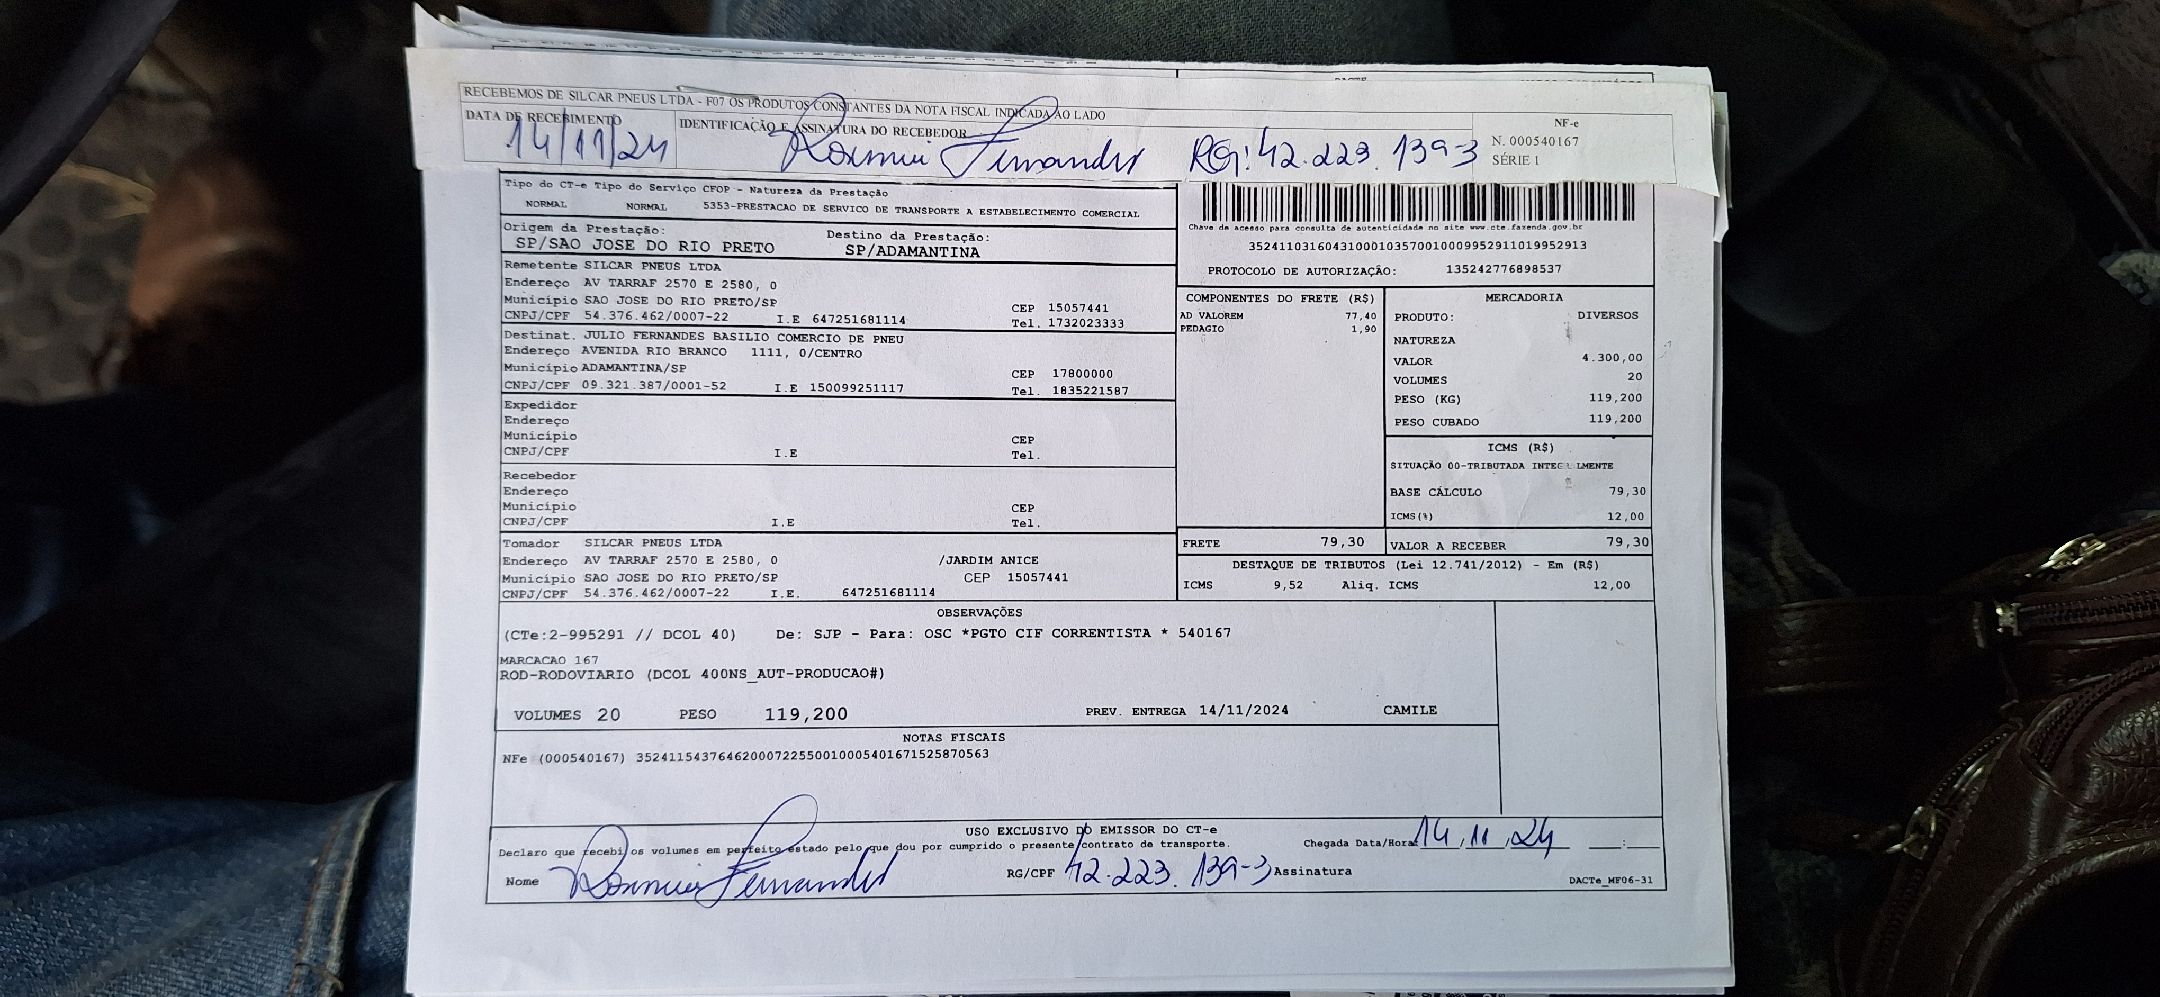 RECEBEMOS DE SILCAR PNEUS LTDA - F07 OS PRODUTOS CONSTANTES DA NOTA FISCAL INDICADA AO LADO
DATA DE RECEBIMENTO IDENTIFICAÇÃO E ASSINATURA DO RECEBEDOR NF-e
14/11/24 Fernandes RG: 42.223.139-3 N. 000540167
SÉRIE 1
Tipo do CT-e Tipo do Serviço CFOP - Natureza da Prestação
NORMAL NORMAL 5353-PRESTACAO DE SERVICO DE TRANSPORTE A ESTABELECIMENTO COMERCIAL
Chave de acesso para consulta de autenticidade no site www.cte.fazenda.gov.br
35241103160431000103570010009952911019952913
PROTOCOLO DE AUTORIZAÇÃO: 135242776898537
Origem da Prestação: Destino da Prestação:
SP/SAO JOSE DO RIO PRETO SP/ADAMANTINA
Remetente SILCAR PNEUS LTDA
Endereço AV TARRAF 2570 E 2580, 0
Município SAO JOSE DO RIO PRETO/SP CEP 15057441
CNPJ/CPF 54.376.462/0007-22 I.E 647251681114 Tel. 1732023333
Destinat. JULIO FERNANDES BASILIO COMERCIO DE PNEU
Endereço AVENIDA RIO BRANCO 1111, 0/CENTRO
Município ADAMANTINA/SP CEP 17800000
CNPJ/CPF 09.321.387/0001-52 I.E 150099251117 Tel. 1835221587
Expedidor
Endereço
Município CEP
CNPJ/CPF I.E Tel.
Recebedor
Endereço
Município CEP
CNPJ/CPF I.E Tel.
Tomador SILCAR PNEUS LTDA
Endereço AV TARRAF 2570 E 2580, 0 /JARDIM ANICE
Município SAO JOSE DO RIO PRETO/SP CEP 15057441
CNPJ/CPF 54.376.462/0007-22 I.E. 647251681114
COMPONENTES DO FRETE (R$)
AD VALOREM 77,40
PEDAGIO 1,90
MERCADORIA
PRODUTO: DIVERSOS
NATUREZA
VALOR 4.300,00
VOLUMES 20
PESO (KG) 119,200
PESO CUBADO 119,200
ICMS (R$)
SITUAÇÃO 00-TRIBUTADA INTEG LMENTE
BASE CÁLCULO 79,30
ICMS(%) 12,00
FRETE 79,30 VALOR A RECEBER 79,30
DESTAQUE DE TRIBUTOS (Lei 12.741/2012) - Em (R$)
ICMS 9,52 Aliq. ICMS 12,00
OBSERVAÇÕES
(CTe:2-995291 // DCOL 40) De: SJP - Para: OSC *PGTO CIF CORRENTISTA * 540167
MARCACAO 167
ROD-RODOVIARIO (DCOL 400NS_AUT-PRODUCAO#)
VOLUMES 20 PESO 119,200 PREV. ENTREGA 14/11/2024 CAMILE
NOTAS FISCAIS
NFe (000540167) 35241154376462000722550010005401671525870563
USO EXCLUSIVO DO EMISSOR DO CT-e
Declaro que recebi os volumes em perfeito estado pelo que dou por cumprido o presente contrato de transporte. Chegada Data/Hora 14,11,24 :
Nome Fernandes RG/CPF 42.223.139-3 Assinatura
DACTe_MF06-31